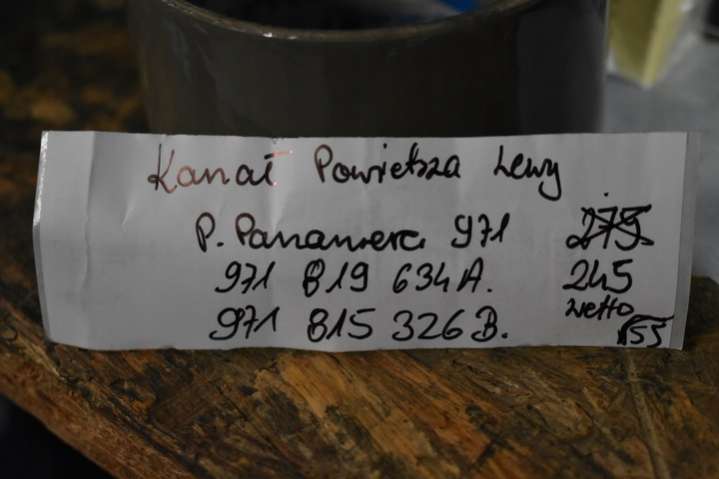 Kanał Powietsza Lewy
P. Panamera 971 275
971 819 634A. 245
971 815 326B. netto